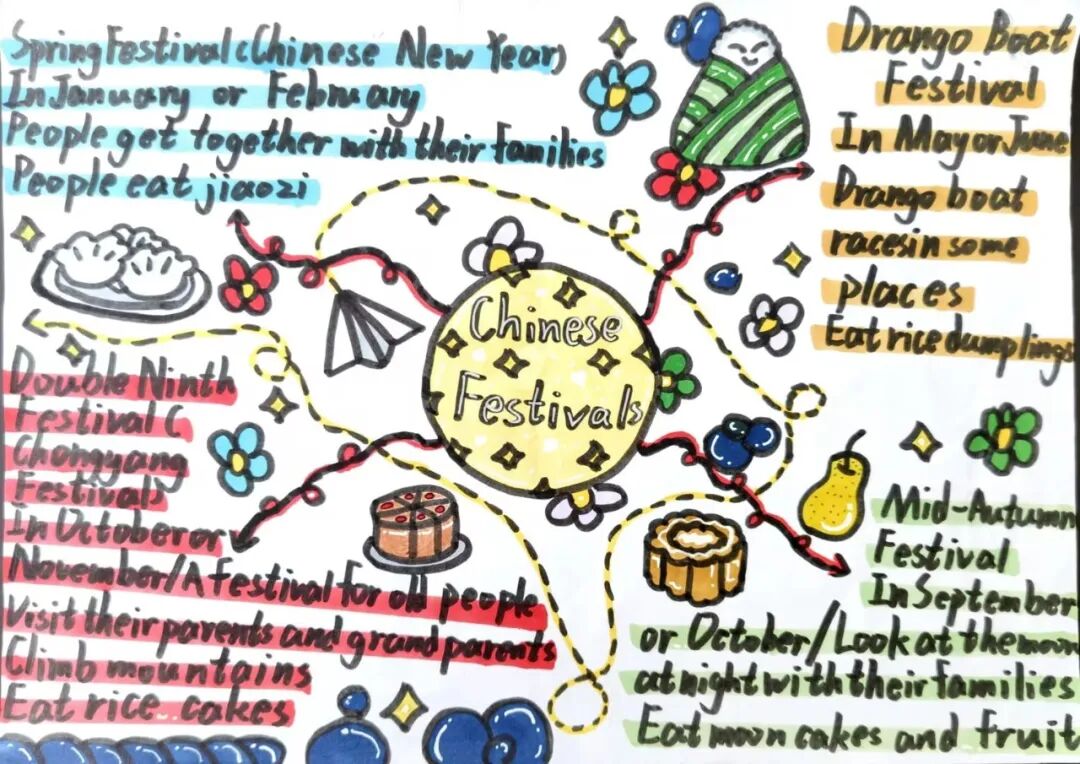 Spring Festival (Chinese New Year)
In January or February
People get together with their families
People eat jiaozi
Drango Boat
Festival
In May or June
Drango boat
races in some
places
Eat rice dumplings
Chinese
Festivals
Double Ninth
Festival (
Chongyang
Festivals)
In October or
November/A festival for old people
Visit their parents and grand parents
Climb mountains
Eat rice cakes
Mid-Autumn
Festival
In September
or October/Look at the moon
at night with their families
Eat moon cakes and fruit